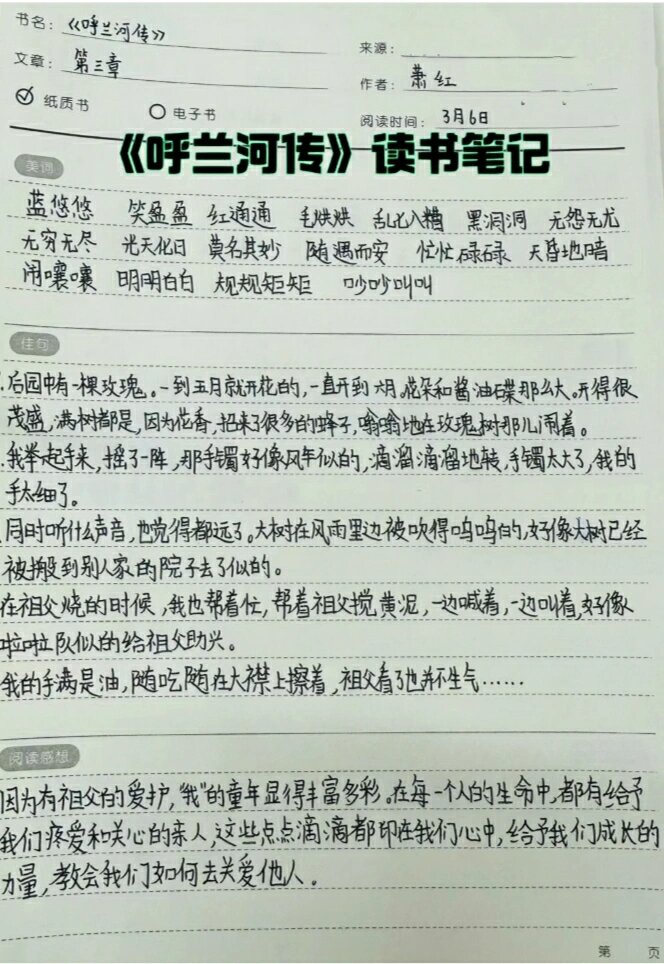 书名：《呼兰河传》
来源：
文章：第三章
作者：萧红
纸质书 电子书
阅读时间：3月6日
《呼兰河传》读书笔记
美词
蓝悠悠 笑盈盈 红通通 毛烘烘 乱七八糟 黑洞洞 无怨无尤
无穷无尽 光天化日 莫名其妙 随遇而安 忙忙碌碌 天昏地暗
闹嚷嚷 明明白白 规规矩矩 吵吵叫叫
佳句
.后园中有一棵玫瑰。一到五月就开花的，一直开到六月。花朵和酱油碟那么大。开得很
茂盛，满树都是，因为花香，招来了很多的蜂子，嗡嗡地在玫瑰树那儿闹着。
.我举起手来，摇了一阵，那手镯好像风车似的，滴溜滴溜地转，手镯太大了，我的
手太细了。
.同时听什么声音，也觉得都远了。大树在风雨里边被吹得呜呜的，好像大树已经
被搬到别人家的院子去了似的。
在祖父烧的时候，我也帮着忙，帮着祖父搅黄泥，一边喊着，一边叫着，好像
啦啦队似的给祖父助兴。
我的手满是油，随吃随在大襟上擦着，祖父看了也并不生气……
阅读感想
因为有祖父的爱护，“我”的童年显得丰富多彩。在每一个人的生命中，都有给予
我们疼爱和关心的亲人，这些点点滴滴都印在我们心中，给予我们成长的
力量，教会我们如何去关爱他人。
第 页